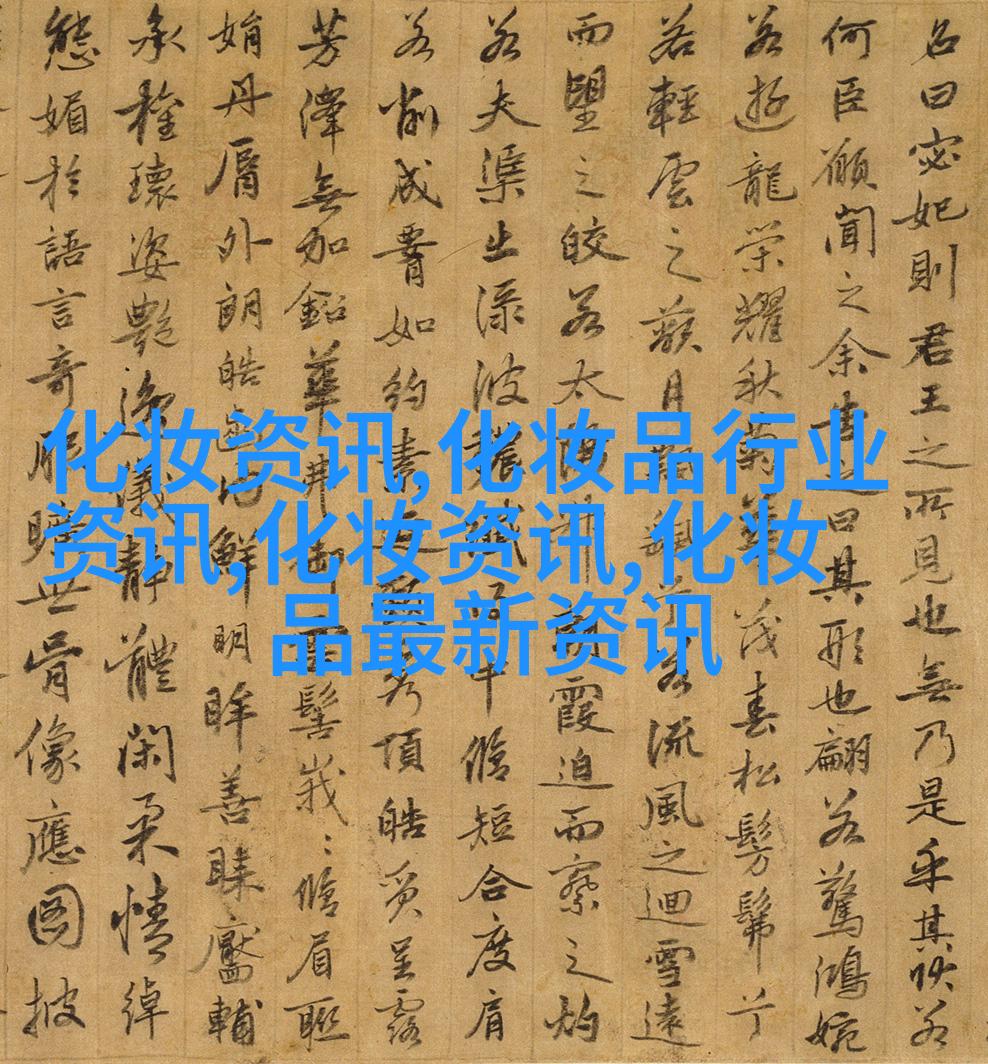 化妆资讯,化妆品行业
资讯,化妆资讯,化妆
品最新资讯
名曰宓妃則君王之所見也無乃是乎其狀若
何臣願聞之余告之曰其形也翩若驚鴻婉
若遊龍榮耀秋菊華茂春松髣髴兮
若輕雲之蔽月飄兮若流風之迴雪遠
而望之皎若太陽升朝霞迫而察之灼
若夫渠出淥波穠纖得中脩短合度肩
若削成腰如約素延頸秀項皓質呈露
芳澤無加鉛華弗御雲髻峩〻脩眉聯
娟丹脣外朗皓齒內鮮明眸善睞靨輔
承權瓌姿艷逸儀靜體閑柔情綽
態媚於語言奇服曠世骨像應圖披